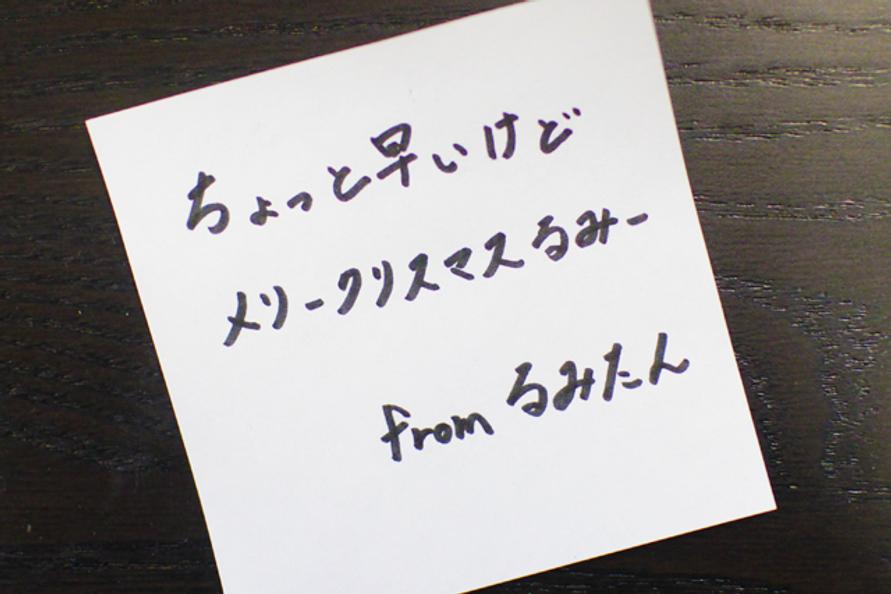 ちょっと早いけど
メリークリスマスるみー
from るみたん